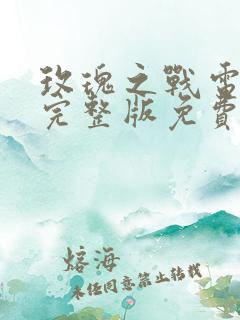 玫瑰之戰電
完整版免費
熔海
未任同意禁止转载